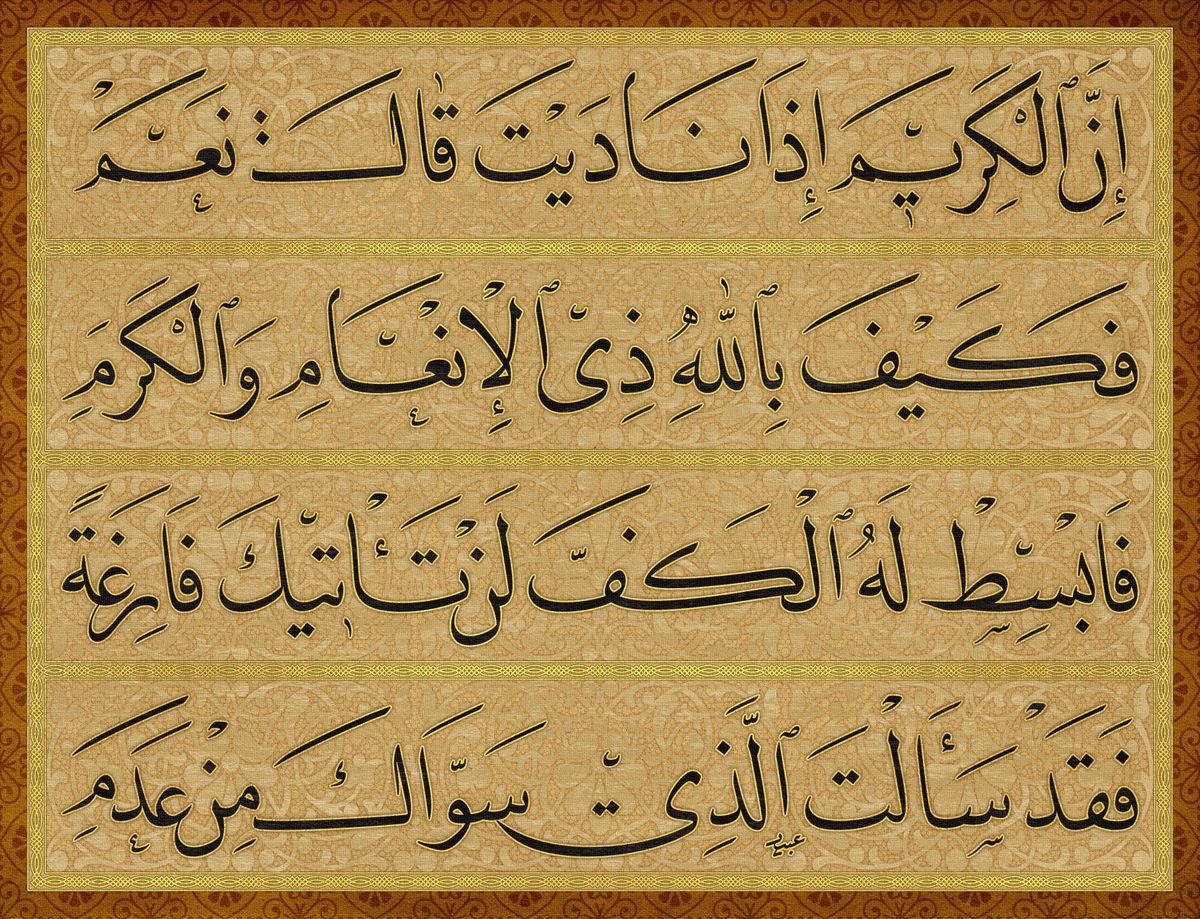 إِنَّ ٱلْكَرِيمَ إِذَا نَادَيْتَ قَالَ نَعَمْ
فَكَيْفَ بِٱللّٰهِ ذِى ٱلْإِنْعَامِ وَٱلْكَرَمِ
فَابْسِطْ لَهُ ٱلْكَفَّ لَنْ تَأْتِيكَ فَارِغَةً
فَقَدْ سَأَلْتَ ٱلَّذِى سَوَّاكَ مِنْ عَدَمِ
عبيد